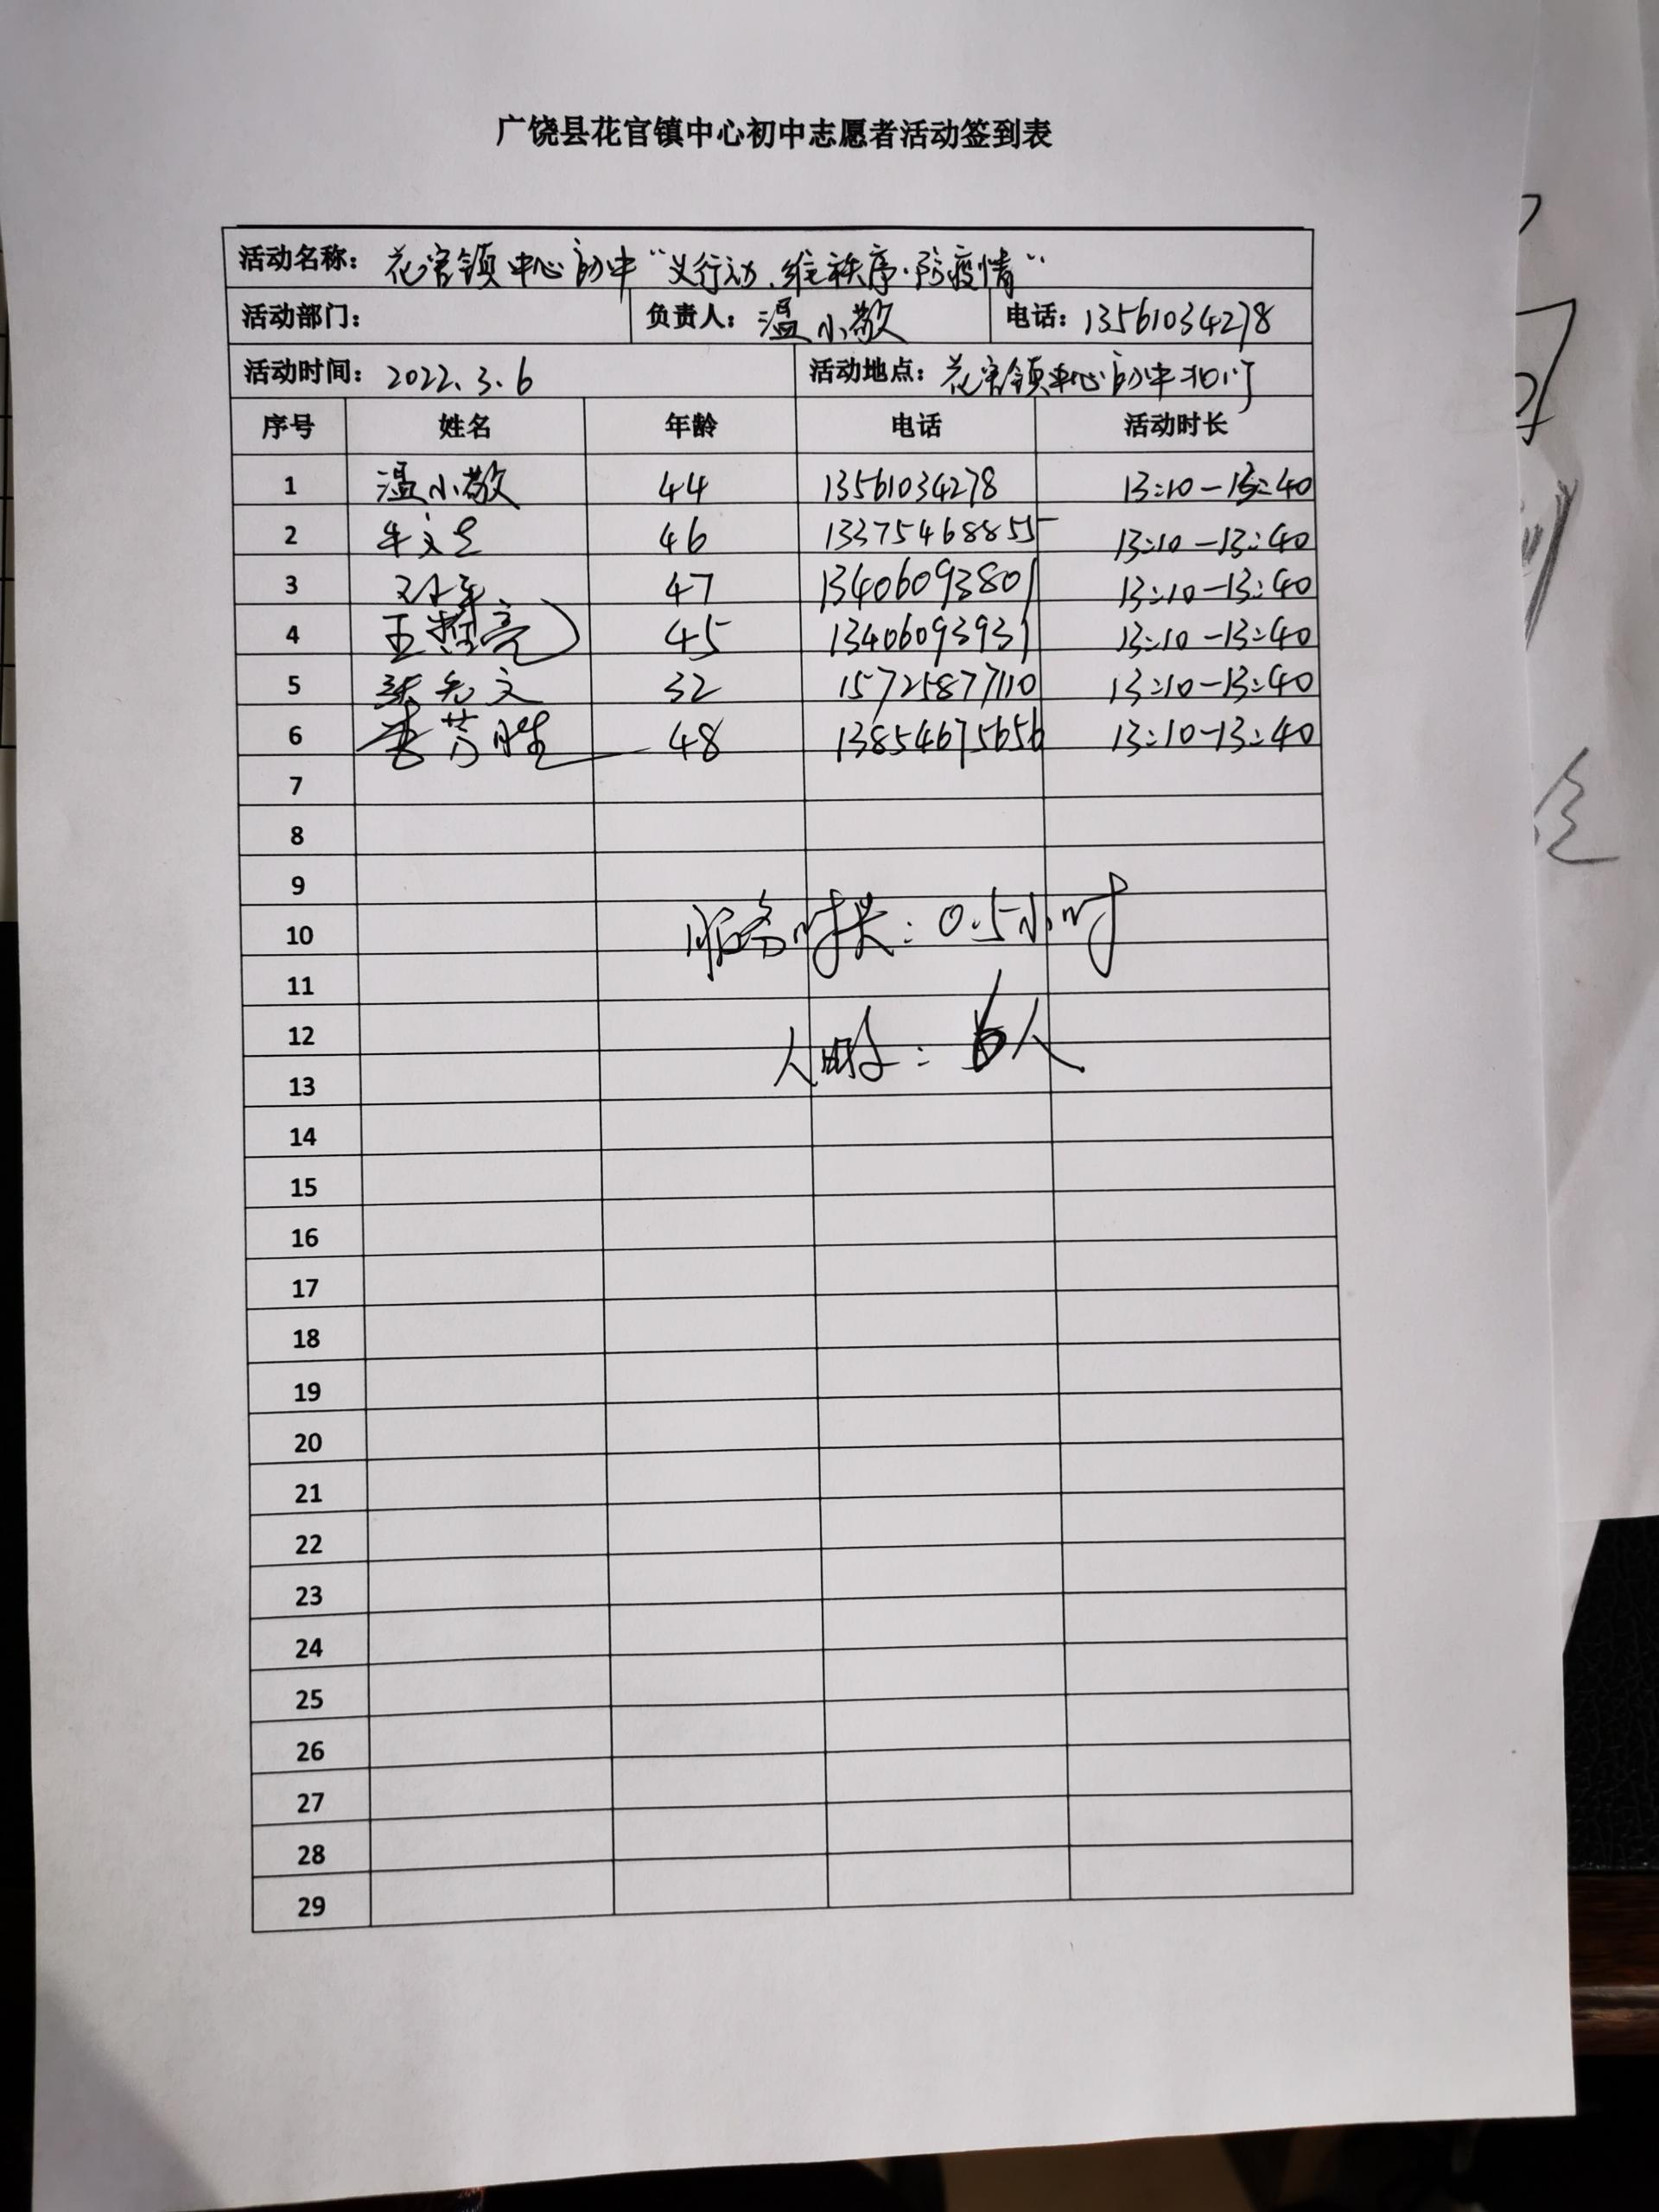 广饶县花官镇中心初中志愿者活动签到表
活动名称：花官镇中心初中“义行动、维秩序、防疫情”
活动部门： 负责人：温小敬 电话：13561034278
活动时间：2022.3.6 活动地点：花官镇中心初中北门
序号 姓名 年龄 电话 活动时长
1 温小敬 44 13561034278 13:10-13:40
2 46 13375468855 13:10-13:40
3 47 13406093801 13:10-13:40
4 王哲亮 45 13406093931 13:10-13:40
5 张先文 32 15725877110 13:10-13:40
6 李芳胜 48 13854675656 13:10-13:40
7
8
9
服务时长：0.5小时
10
11
12
人 ：6人
13
14
15
16
17
18
19
20
21
22
23
24
25
26
27
28
29